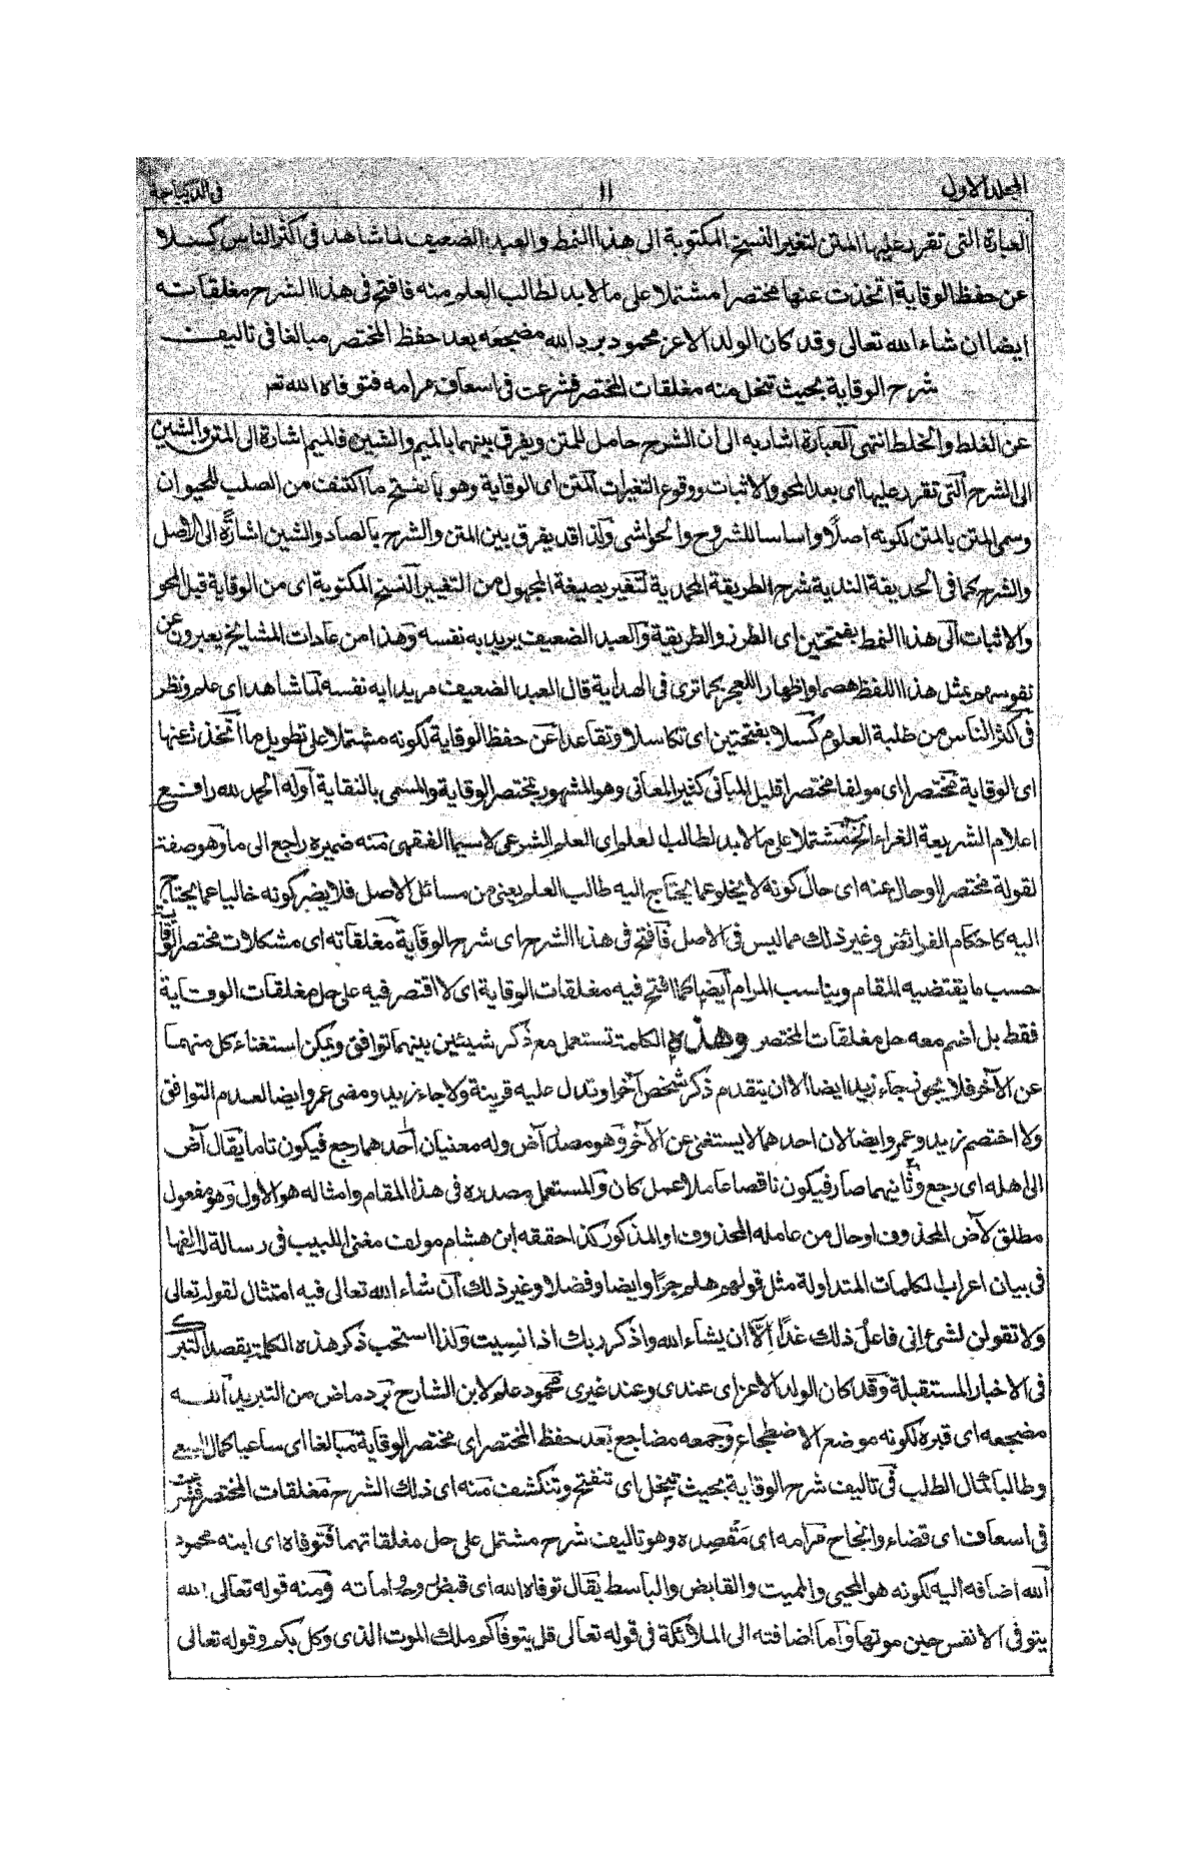 المجلد الاول ١١ فى الديباجة
العبارة التى تقرر عليها المتن لتغير النسخ المكتوبة الى هذا النمط والعبد الضعيف لما شاهد فى اكثر الناس كسلا
عن حفظ الوقاية اتخذت عنها مختصرا مشتملا على ما لا بد لطالب العلم منه فافتح فى هذا الشرح مغلقاته
ايضا ان شاء الله تعالى وقد كان الولد الاعز محمود برد الله مضجعه بعد حفظ المختصر مبالغا فى تاليف
شرح الوقاية بحيث تنحل منه مغلقات المختصر فشرعت فى اسعاف مرامه فتوفاه الله تعـ
عن الغلط والخلط انتهى العبارة اشار به الى ان الشرح حامل للمتن ويفرق بينهما بالميم والشين فالميم اشارة الى المتن والشين
الى الشرح التى تقرر عليها اى بعد المحو والاثبات ووقوع التغيرات المتن اى الوقاية وهو بالفتح ما اكتنف من الصلب للحيوان
وسمى المتن بالمتن لكونه اصلا واساسا للشروح والحواشى ولذا قد يفرق بين المتن والشرح بالصاد والشين اشارة الى الاصل
والشرح كما فى الحديقة الندية شرح الطريقة المحمدية لتغير بصيغة المجهول من التغيير النسخ المكتوبة اى من الوقاية قبل المحو
والاثبات الى هذا النمط بفتحتين اى الطرز والطريقة والعبد الضعيف يريد به نفسه وهذا من عادات المشايخ يعبرون عن
نفوسهم بمثل هذا اللفظ هضما واظهار اللعجز كما ترى فى الهداية قال العبد الضعيف مريدا به نفسه لما شاهد اى علم ونظر
فى اكثر الناس من طلبة العلوم كسلا بفتحتين اى تكاسلا وتقاعدا عن حفظ الوقاية لكونه مشتملا على تطويل ما اتخذت عنها
اى الوقاية مختصرا اى مولفا مختصرا قليل المبانى كثير المعانى وهو المشهور بمختصر الوقاية والمسمى بالنقاية اوله الحمد لله رافع
اعلام الشريعة الغراء الخ مشتملا على ما لا بد لطالب العلم اى العلم الشرعى لاسيما الفقهى منه ضميره راجع الى ما وهو صفة
لقوله مختصرا او حال عنه اى حال كونه لا يخلو عما يحتاج اليه طالب العلم يعنى من مسائل الاصل فلا يضر كونه خاليا عما يحتاج
اليه كاحكام الفرائض وغير ذلك مما ليس فى الاصل فافتح فى هذا الشرح اى شرح الوقاية مغلقاته اى مشكلات مختصر الوقاية
حسب ما يقتضيه المقام ويناسب المرام ايضا كما افتح فيه مغلقات الوقاية اى لا اقتصر فيه على حل مغلقات الوقاية
فقط بل اضم معه حل مغلقات المختصر وهذه الكلمة تستعمل مع ذكر شيئين بينهما توافق ويمكن استغناء كل منهما
عن الآخر فلا يجوز جاء زيد ايضا الا ان يتقدم ذكر شخص آخر او تدل عليه قرينة ولا جاء زيد ومضى عمرو ايضا لعدم التوافق
ولا اختصم زيد وعمرو ايضا لان احدهما لا يستغنى عن الآخر وهو مصدر آض وله معنيان احدهما رجع فيكون تاما يقال آض
الى اهله اى رجع وثانيهما صار فيكون ناقصا عاملا عمل كان والمستعمل مصدره فى هذا المقام وامثاله هو الاول وهو مفعول
مطلق لآض المحذوف او حال من عامله المحذوف او المذكور كذا حققه ابن هشام مولف مغنى اللبيب فى رسالة الفها
فى بيان اعراب الكلمات المتداولة مثل قولهم هلم جرا وايضا وفضلا وغير ذلك ان شاء الله تعالى فيه امتثال لقوله تعالى
ولا تقولن لشئ انى فاعل ذلك غدا الا ان يشاء الله واذكر ربك اذا نسيت ولذا استحب ذكر هذه الكلمة بقصد التبرك
فى الاخبار المستقبلة وقد كان الولد الاعز اى عندى وعند غيرى محمود علم لابن الشارح برد ماض من التبريد الله
مضجعه اى قبره لكونه موضع الاضطجاع وجمعه مضاجع بعد حفظ المختصر اى مختصر الوقاية مبالغا اى ساعيا كمال السعى
وطالبا كمال الطلب فى تاليف شرح الوقاية بحيث تنحل اى تنفتح وتنكشف منه اى ذلك الشرح مغلقات المختصر فشرعت
فى اسعاف اى قضاء وانجاح مرامه اى مقصده وهو تاليف شرح مشتمل على حل مغلقاتهما فتوفاه اى ابنه محمود
الله اضافه اليه لكونه هو المحيى والمميت والقابض والباسط يقال توفاه الله اى قبض روحه واماته ومنه قوله تعالى الله
يتوفى الانفس حين موتها واما اضافته الى الملائكة فى قوله تعالى قل يتوفاكم ملك الموت الذى وكل بكم وقوله تعالى